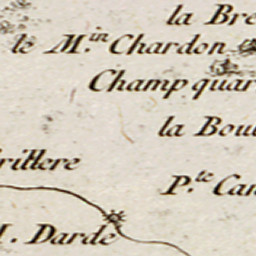 la Bre
le M.in Chardon
Champ quar
la Bou
rittere
P.te Can
M. Darde